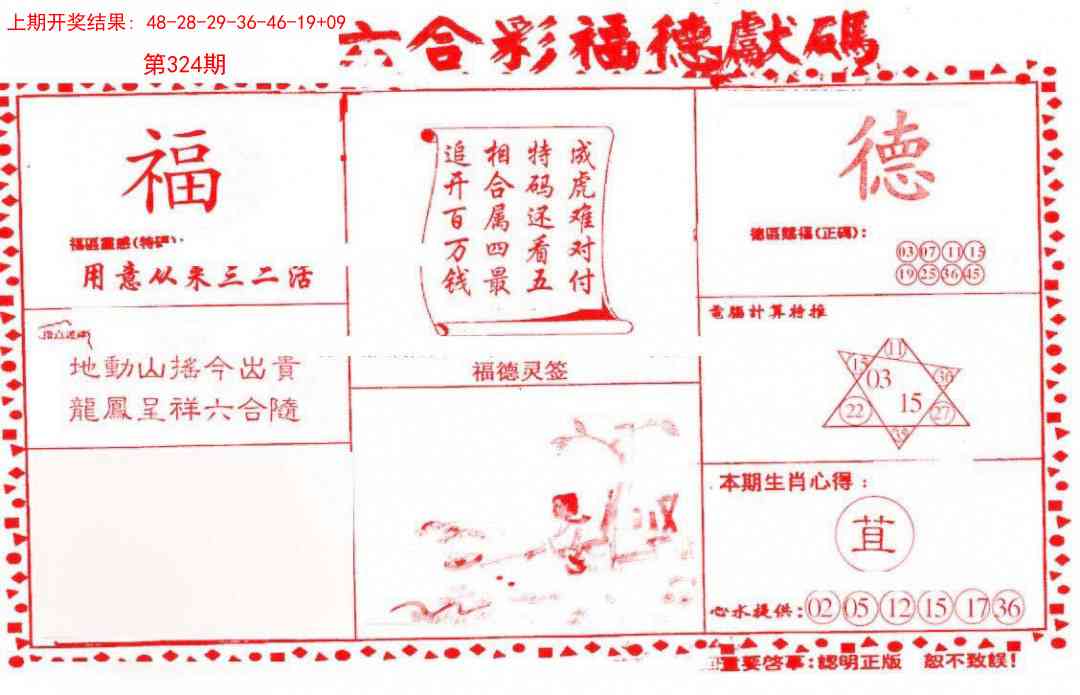 上期开奖结果: 48-28-29-36-46-19+09
第324期
六合彩福德獻碼
福
福區靈感(特碼):
用意从来三二活
地動山搖今出貴
龍鳳呈祥六合隨
成虎难对付
特码还看五
相合属四最
追开百万钱
福德灵签
德
德區賜福(正碼):
03 07 11 15
19 25 36 45
電腦計算特推
11
15
03
36
22
15
27
本期生肖心得:
苴
心水提供: 02 05 12 15 17 36
重要啓事: 認明正版 恕不致誤!